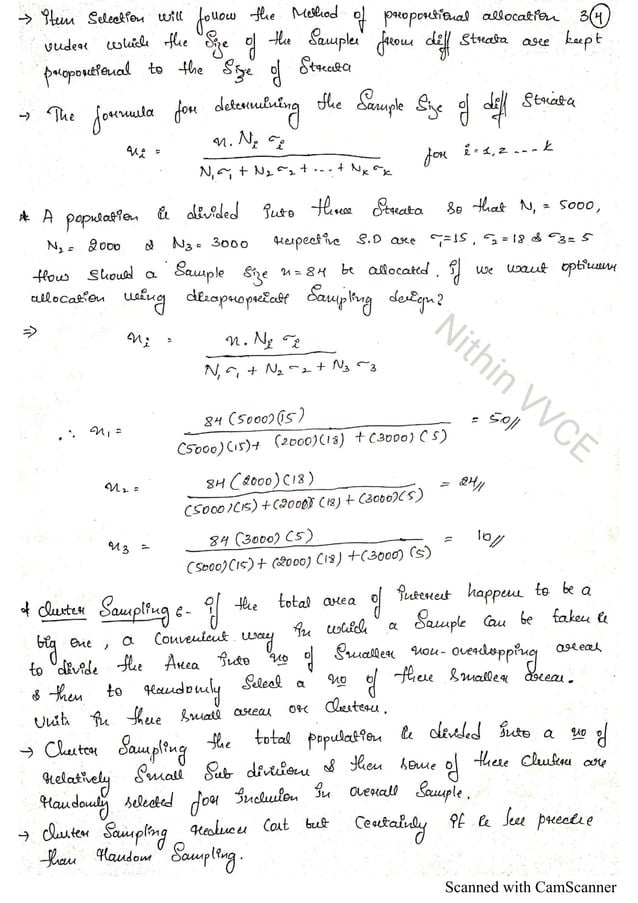 → Item Selection will follow the Method of proportional allocation 3(4)
under which the Size of the Samples from diff Strata are kept
proportional to the Size of Strata
→ The formula for determining the Sample Size of diff Strata
nᵢ = n. Nᵢ σᵢ / N₁σ₁ + N₂σ₂ + ... + Nₖσₖ for i = 1, 2 ---- k
* A population is divided into three Strata So that N₁ = 5000,
N₂ = 2000 & N₃ = 3000 respective S.D are σ₁=15, σ₂=18 & σ₃=5
How Should a Sample Size n=84 be allocated. If we want optimum
allocation using disapropriate Sampling design?
⇒ nᵢ = n. Nᵢ σᵢ / N₁σ₁ + N₂σ₂ + N₃σ₃
∴ n₁ = 84(5000)(15) / (5000)(15)+ (2000)(18) +(3000)(5) = 50//
n₂ = 84(2000)(18) / (5000)(15)+(2000)(18)+(3000)(5) = 24//
n₃ = 84(3000)(5) / (5000)(15)+(2000)(18)+(3000)(5) = 10//
* Cluster Sampling :- If the total area of Interest happens to be a
big one, a Convenient way in which a Sample Can be taken is
to divide the Area into no of Smaller non-overlapping areas
& then to Randomly Select a no of these Smaller areas.
Units in these Small areas or Clusters.
→ Cluster Sampling the total population is divided into a no of
Relatively Small Sub divisions & then some of these Clusters are
Randomly selected for Inclusion in overall Sample.
→ Cluster Sampling Reduces Cost but Certainly it is less precise
than Random Sampling.
Nithin VVCE
Scanned with CamScanner